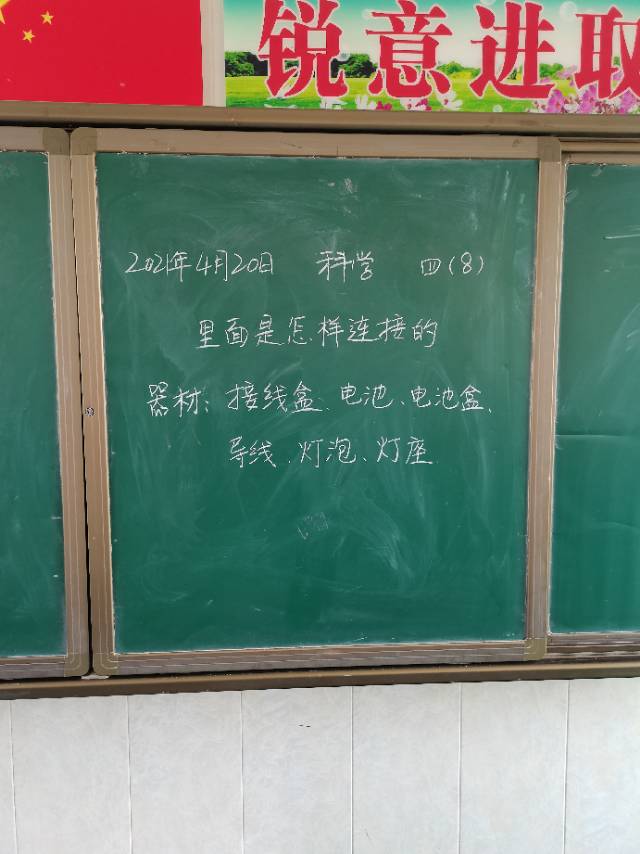 锐意进取
2021年4月20日 科学 四(8)
里面是怎样连接的
器材: 接线盒、电池、电池盒、
导线、灯泡、灯座